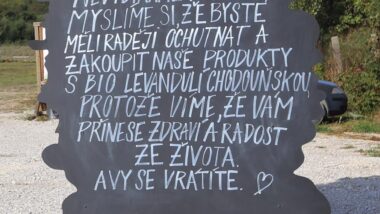 MYSLÍME SI, ŽE BYSTE
MĚLI RADĚJI OCHUTNAT A
ZAKOUPIT NAŠE PRODUKTY
S BIO LEVANDULÍ CHODOUŇSKOU,
PROTOŽE VÍME, ŽE VÁM
PŘINESE ZDRAVÍ A RADOST
ZE ŽIVOTA.
A VY SE VRÁTÍTE.